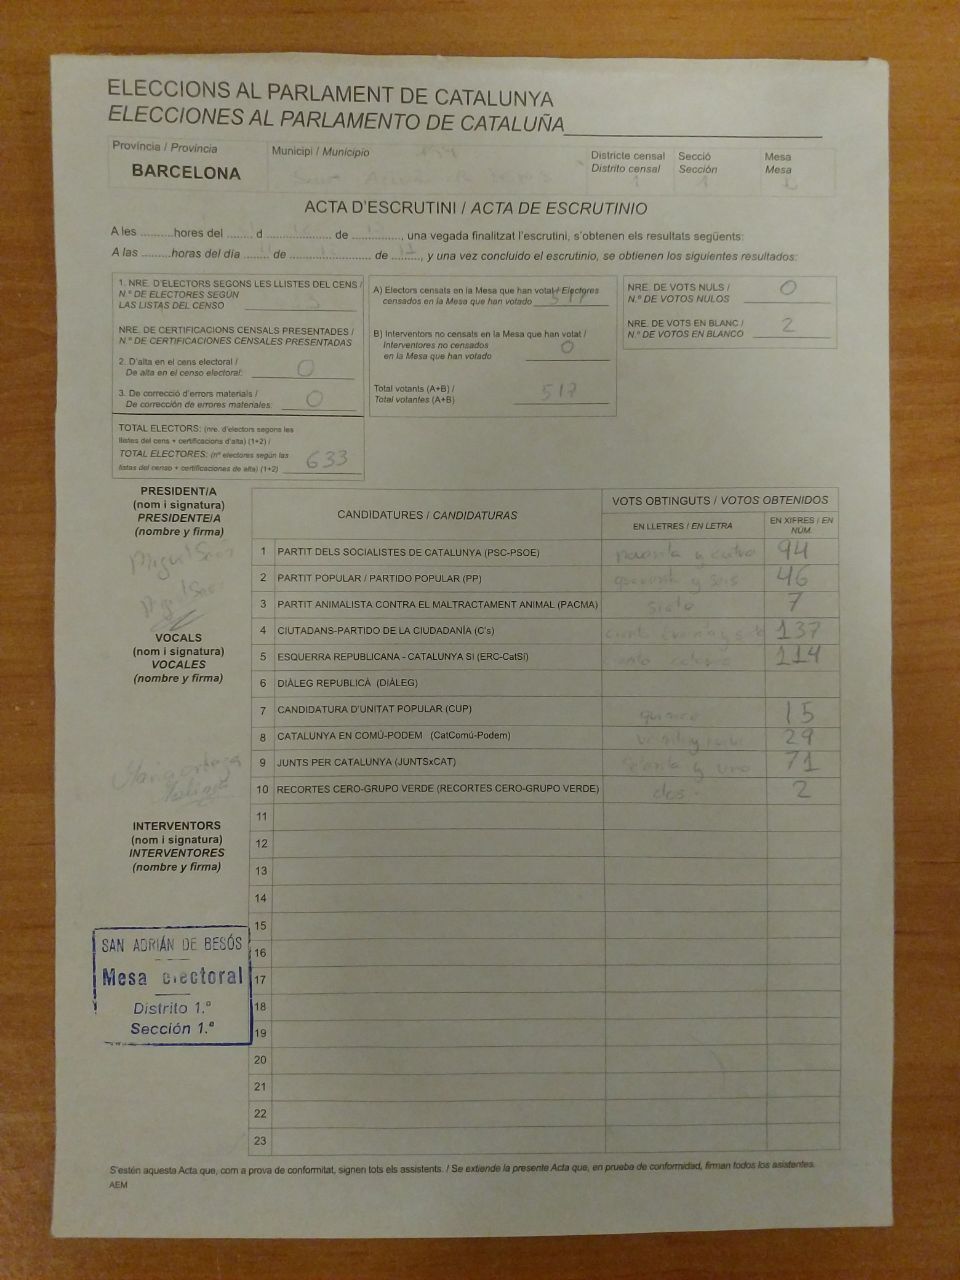 ELECCIONS AL PARLAMENT DE CATALUNYA
ELECCIONES AL PARLAMENTO DE CATALUÑA
Província / Provincia
BARCELONA
Municipi / Municipio
Districte censal
Distrito censal
1
Secció
Sección
1
Mesa
Mesa
ACTA D'ESCRUTINI / ACTA DE ESCRUTINIO
A les ..........hores del ........ d .................... de ..............., una vegada finalitzat l'escrutini, s'obtenen els resultats següents:
A las ..........horas del día ........ de ......................... de ........., y una vez concluido el escrutinio, se obtienen los siguientes resultados:
1. NRE. D'ELECTORS SEGONS LES LLISTES DEL CENS /
N.º DE ELECTORES SEGÚN
LAS LISTAS DEL CENSO
NRE. DE CERTIFICACIONS CENSALS PRESENTADES /
N.º DE CERTIFICACIONES CENSALES PRESENTADAS
2. D'alta en el cens electoral /
De alta en el censo electoral: 0
3. De correcció d'errors materials /
De corrección de errores materiales: 0
TOTAL ELECTORS: (nre. d'electors segons les
llistes del cens + certificacions d'alta) (1+2) /
TOTAL ELECTORES: (nº electores según las
listas del censo + certificaciones de alta) (1+2) 633
A) Electors censats en la Mesa que han votat / Electores
censados en la Mesa que han votado 517
B) Interventors no censats en la Mesa que han votat /
Interventores no censados
en la Mesa que han votado 0
Total votants (A+B) /
Total votantes (A+B) 517
NRE. DE VOTS NULS /
N.º DE VOTOS NULOS 0
NRE. DE VOTS EN BLANC /
N.º DE VOTOS EN BLANCO 2
PRESIDENT/A
(nom i signatura)
PRESIDENTE/A
(nombre y firma)
VOCALS
(nom i signatura)
VOCALES
(nombre y firma)
INTERVENTORS
(nom i signatura)
INTERVENTORES
(nombre y firma)
SAN ADRIÁN DE BESÓS
Mesa electoral
Distrito 1.º
Sección 1.ª
CANDIDATURES / CANDIDATURAS
VOTS OBTINGUTS / VOTOS OBTENIDOS
EN LLETRES / EN LETRA
EN XIFRES / EN NÚM.
1 PARTIT DELS SOCIALISTES DE CATALUNYA (PSC-PSOE) 94
2 PARTIT POPULAR / PARTIDO POPULAR (PP) 46
3 PARTIT ANIMALISTA CONTRA EL MALTRACTAMENT ANIMAL (PACMA) siete 7
4 CIUTADANS-PARTIDO DE LA CIUDADANÍA (C's) 137
5 ESQUERRA REPUBLICANA - CATALUNYA SI (ERC-CatSí) 114
6 DIÀLEG REPUBLICÀ (DIÀLEG)
7 CANDIDATURA D'UNITAT POPULAR (CUP) quince 15
8 CATALUNYA EN COMÚ-PODEM (CatComú-Podem) 29
9 JUNTS PER CATALUNYA (JUNTSxCAT) setenta y uno 71
10 RECORTES CERO-GRUPO VERDE (RECORTES CERO-GRUPO VERDE) dos 2
11
12
13
14
15
16
17
18
19
20
21
22
23
S'estén aquesta Acta que, com a prova de conformitat, signen tots els assistents. / Se extiende la presente Acta que, en prueba de conformidad, firman todos los asistentes.
AEM